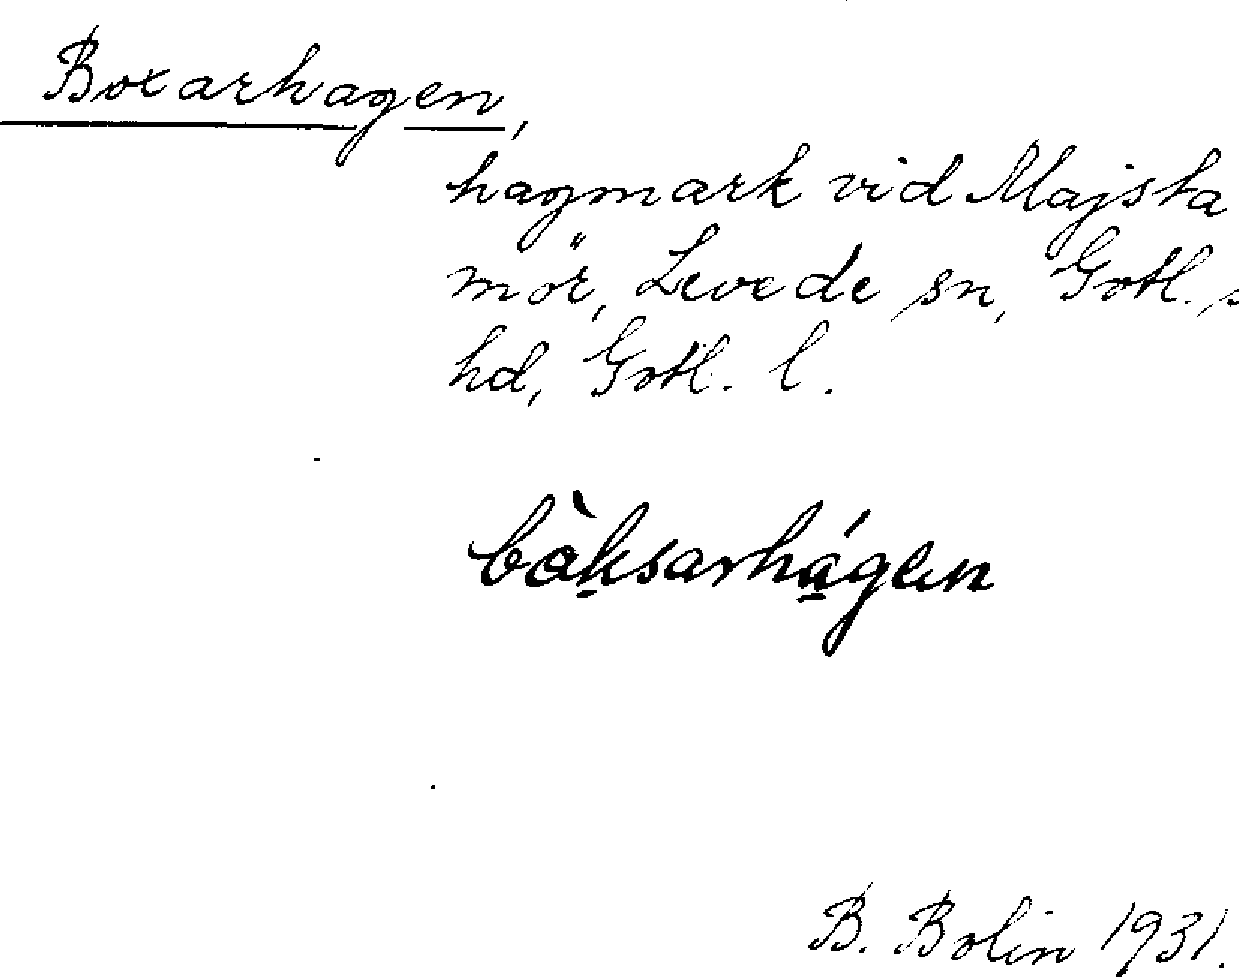 Boxarhagen,
hagmark vid Majsta
mör, Levede sn, Gotl. s
hd, Gotl. l.
bòksarhágen
B. Bolin 1931.